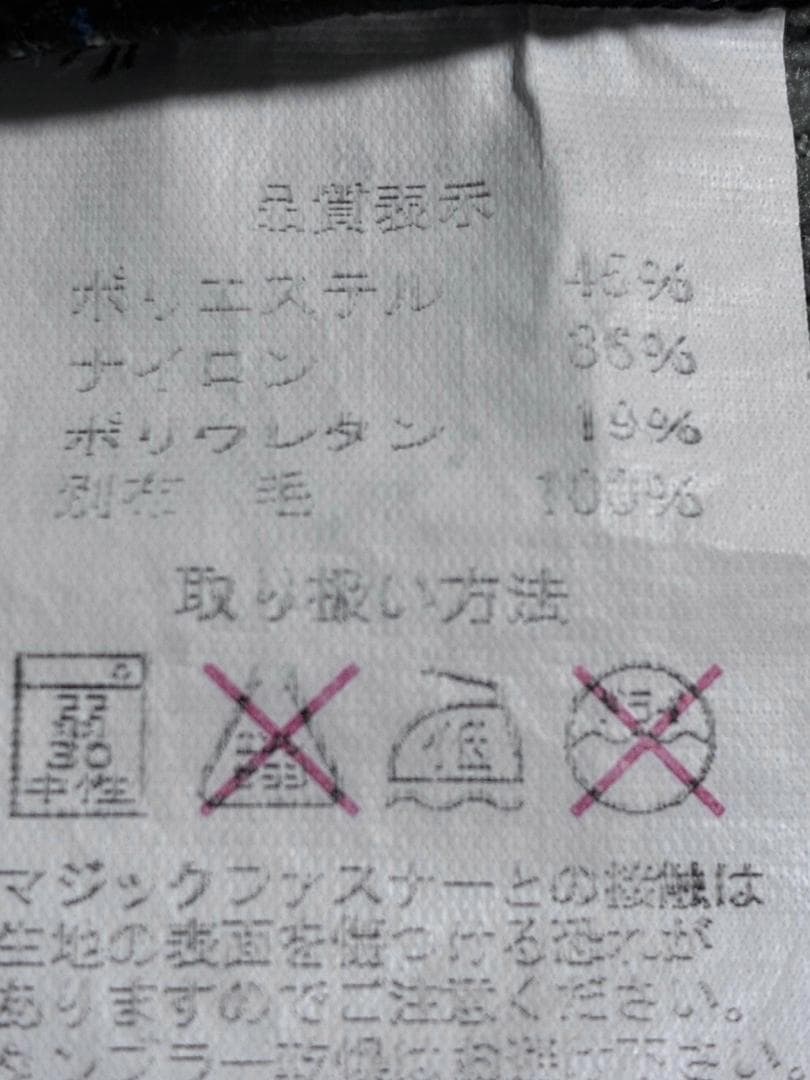 品質表示
ポリエステル 45%
ナイロン 36%
ポリウレタン 19%
別布 毛 100%
取り扱い方法
弱 30 中性
低
マジックファスナーとの接触は
生地の表面を傷つける恐れが
ありますのでご注意ください。
タンブラー乾燥はお避け下さい。